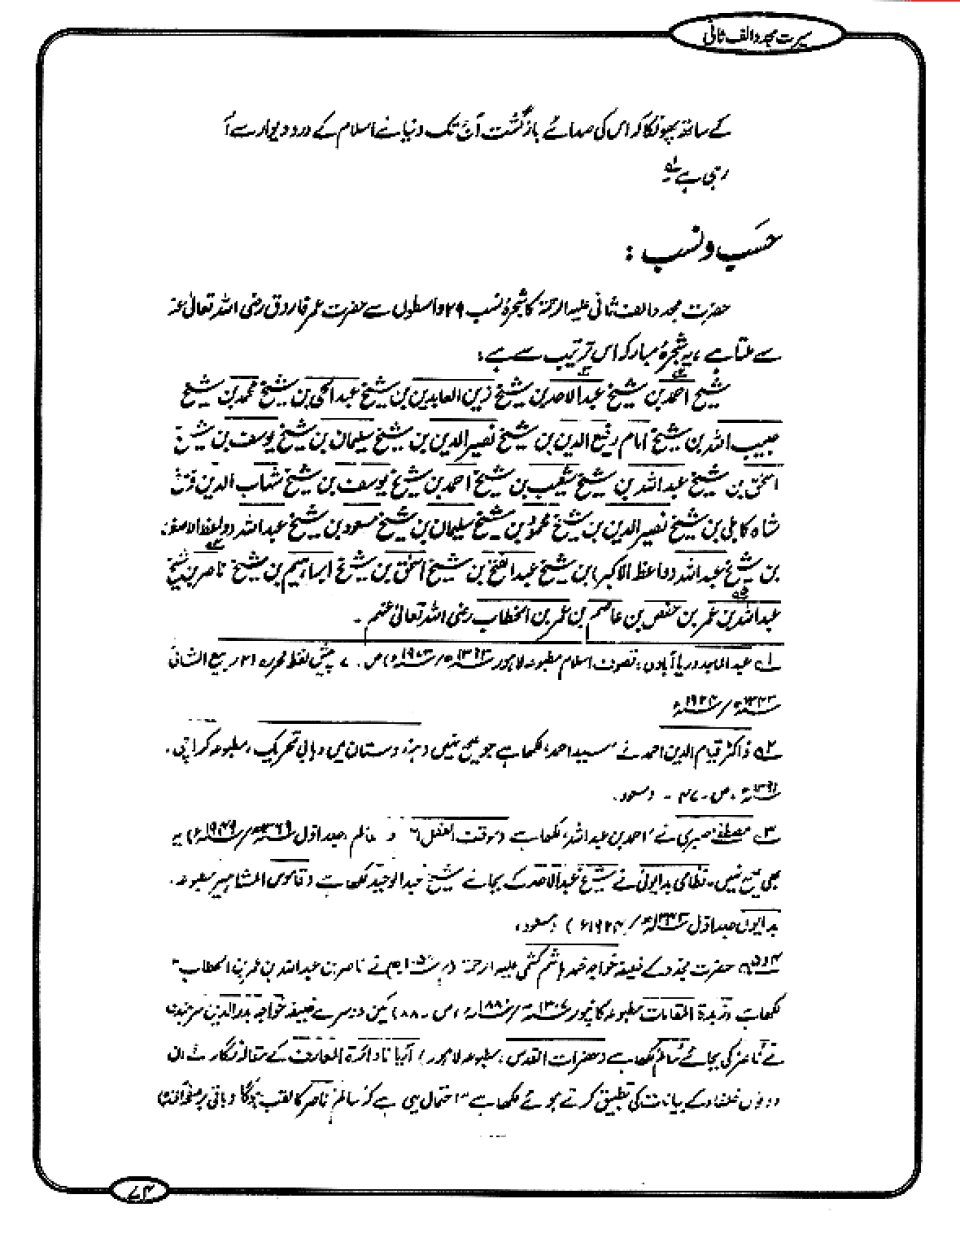 سیرت مجدد الف ثانی
کے ساتھ پھونکا کہ اس کی صدائے بازگشت آج تک دنیائے اسلام کے در و دیوار سے آ
رہی ہے ؎۱
حسب و نسب :
حضرت مجدد الف ثانی علیہ الرحمۃ کا شجرۂ نسب ۲۹ واسطوں سے حضرت عمر فاروق رضی اللہ تعالیٰ عنہ
سے ملتا ہے ، یہ شجرۂ مبارکہ اس ترتیب سے ہے :
شیخ احمد ؎۲ بن شیخ عبدالاحد ؎۳ بن شیخ زین العابدین بن شیخ عبدالحی بن شیخ محمد بن شیخ
حبیب اللہ بن شیخ امام رفیع الدین بن شیخ نصیر الدین بن شیخ سلیمان بن شیخ یوسف بن شیخ
اسحٰق بن شیخ عبداللہ بن شیخ شعیب بن شیخ احمد بن شیخ یوسف بن شیخ شہاب الدین فرخ
شاہ کابلی بن شیخ نصیر الدین بن شیخ محمود بن شیخ سلیمان بن شیخ مسعود بن شیخ عبداللہ (واعظ الاصغر)
بن شیخ عبداللہ (واعظ الاکبر) بن شیخ عبدالفتح بن شیخ اسحٰق بن شیخ ابراہیم بن شیخ ناصر ؎۴ بن شیخ
عبداللہ ؎۵ بن عمر بن حفص بن عاصم بن عمر بن الخطاب رضی اللہ تعالیٰ عنہم ۔
؎۱ عبدالماجد دریاآبادی : تصوف اسلام مطبوعہ لاہور ۱۳۹۳ھ / ۱۹۷۳ء) ص ۔ ۷ پیش لفظ محررہ (۲ ربیع الثانی
۱۳۴۳ھ / ۱۹۲۴ء
؎۲ ڈاکٹر قیام الدین احمد نے سید احمد لکھا ہے جو صحیح نہیں (ہندوستان میں وہابی تحریک ، مطبوعہ کراچی ،
ص ۔ ۴۷ ۔ مسعود
؎۳ مصطفےٰ صبری نے "احمد بن عبداللہ" لکھا ہے (موقف العقل و عالم جلد اوّل ۱۳۶۹ھ / ۱۹۴۹ء) یہ
بھی صحیح نہیں ۔ نظامی بدایونی نے شیخ عبدالاحد کے بجائے شیخ عبدالوحید لکھا ہے (قاموس المشاہیر مطبوعہ ،
بدایوں جلد اوّل / ۱۹۲۴ء ) مسعود
؎۴ و ؎۵ حضرت مجدد کے خلیفہ خواجہ محمد ہاشم کشمی علیہ الرحمۃ نے ناصر بن عبداللہ بن عمر بن الخطاب"
لکھا ہے (زبدۃ المقامات مطبوعہ کانپور ۱۳۰۷ھ ص ۔ ۸۸) لیکن دوسرے خلیفہ خواجہ بدر الدین سرہندی
نے ناصر کی بجائے سالم لکھا ہے (حضرات القدس ، مطبوعہ لاہور) دائرۃ المعارف کے مقالہ نگار نے ان
دونوں خلفاء کے بیانات کی تطبیق کرتے ہوئے لکھا ہے "احتمال یہی ہے کہ سالم ناصر کا لقب ہوگا (باقی بر صفحہ آئندہ)
۷۴